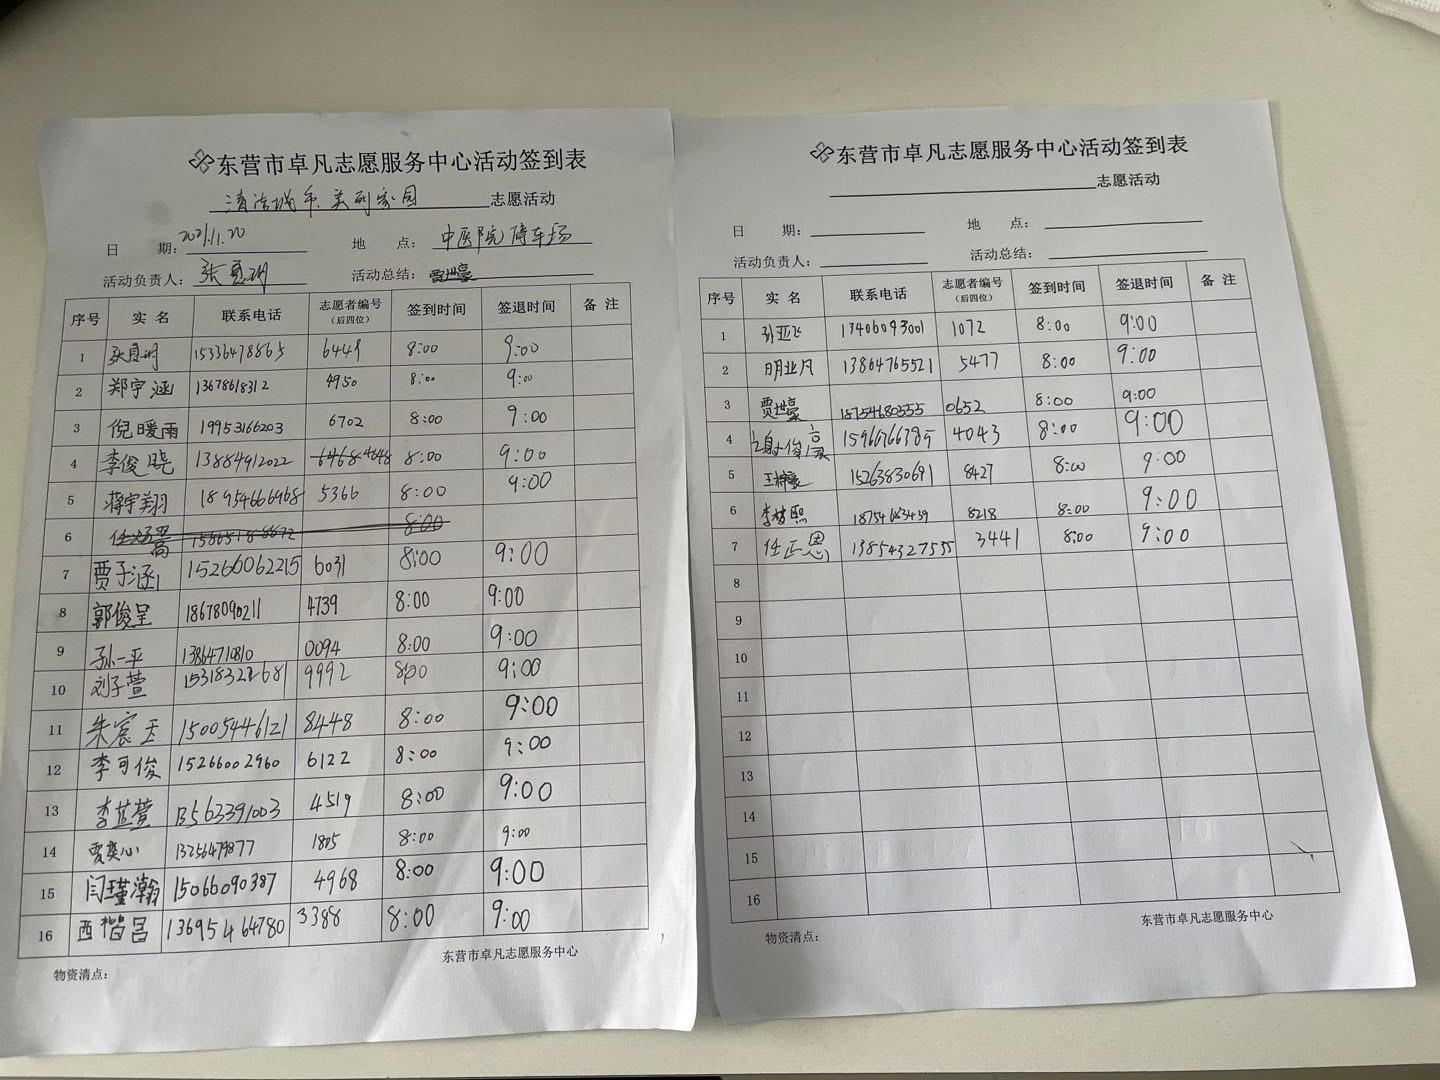 东营市卓凡志愿服务中心活动签到表
清洁城市 美丽家园 志愿活动
日 期: 2021.11.20 地 点: 中医院停车场
活动负责人: 张 活动总结: 贾世豪
序号 实 名 联系电话 志愿者编号(后四位) 签到时间 签退时间 备 注
1 张 15336478865 6449 8:00 9:00
2 郑宇涵 13678618312 4950 8:00 9:00
3 倪暖雨 19953166203 6702 8:00 9:00
4 李俊晓 13884912022 6468 4648 8:00 9:00
5 蒋宇翔 18954666968 5366 8:00 9:00
6 任 8:00
7 贾子涵 15266062215 6031 8:00 9:00
8 郭俊呈 18678090211 4739 8:00 9:00
9 孙一平 13864710810 0094 8:00 9:00
10 刘子萱 15318322681 9992 8:00 9:00
11 朱宸玉 15005446121 8448 8:00 9:00
12 李可俊 15266002960 6122 8:00 9:00
13 李芷萱 13563391003 4519 8:00 9:00
14 贾奕心 13256479877 1805 8:00 9:00
15 闫瑾瀚 15066090387 4968 8:00 9:00
16 西楷昌 13695464780 3388 8:00 9:00
东营市卓凡志愿服务中心
物资清点:
东营市卓凡志愿服务中心活动签到表
志愿活动
日 期: 地 点:
活动负责人: 活动总结:
序号 实 名 联系电话 志愿者编号(后四位) 签到时间 签退时间 备 注
1 孙亚飞 13406093001 1072 8:00 9:00
2 明业凡 13864765521 5477 8:00 9:00
3 贾世豪 18754680555 0652 8:00 9:00
4 谢俊 15966766785 4043 8:00 9:00
5 王梓豪 15263830691 8427 8:00 9:00
6 李梦熙 18754683439 8218 8:00 9:00
7 任正恩 13854327535 3441 8:00 9:00
8
9
10
11
12
13
14
15
16
东营市卓凡志愿服务中心
物资清点: